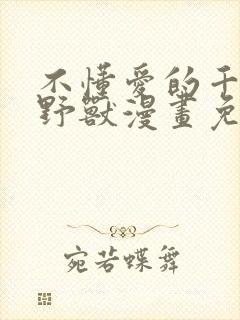 不懂愛的千
野獸漫畫免
宛若蝶舞